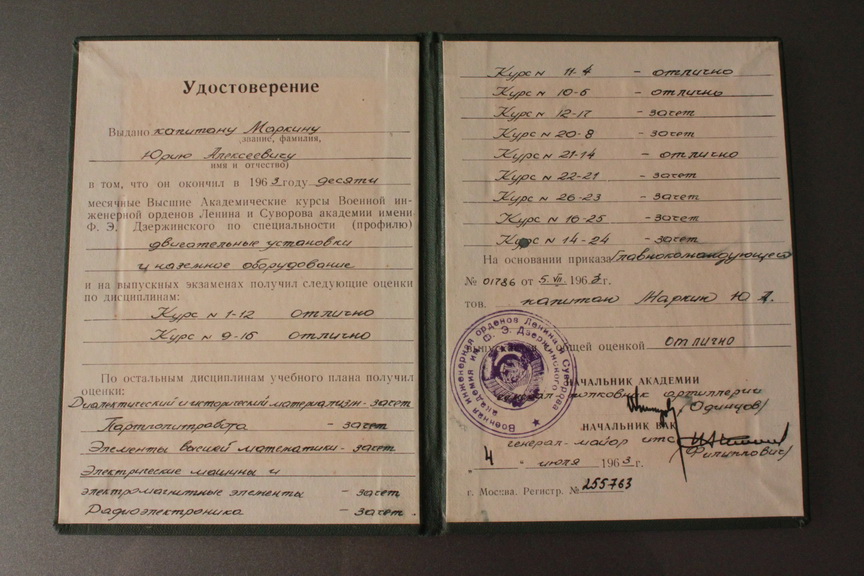 Удостоверение
Выдано капитану Маркину
звание, фамилия,
Юрию Алексеевичу
имя и отчество)
в том, что он окончил в 1963 году десяти
месячные Высшие Академические курсы Военной ин-
женерной орденов Ленина и Суворова академии имени
Ф. Э. Дзержинского по специальности (профилю)
двигательные установки
и наземное оборудование
и на выпускных экзаменах получил следующие оценки
по дисциплинам:
Курс № 1-12 отлично
Курс № 9-16 отлично
По остальным дисциплинам учебного плана получил
оценки:
Диалектический и исторический материализм - зачет
Партполитработа - зачет
Элементы высшей математики - зачет
Электрические машины и
электромагнитные элементы - зачет
Радиоэлектроника - зачет.
Курс № 11-4 - отлично
Курс № 10-6 - отлично
Курс № 12-17 - зачет
Курс № 20-8 - зачет
Курс № 21-14 - отлично
Курс № 22-21 - зачет
Курс № 26-23 - зачет
Курс № 16-25 - зачет
Курс № 14-24 - зачет
На основании приказа Главнокомандующего
№ 01786 от 5.VII 1963 г.
тов. капитан Маркин Ю
общей оценкой отлично
Военная инженерная орденов Ленина и Суворова
академия им. Ф. Э. Дзержинского
НАЧАЛЬНИК АКАДЕМИИ
артиллерии
Одинцов/
НАЧАЛЬНИК ВАК
генерал-майор итс
Филиппович/
"4" июля 1963 г.
г. Москва. Регистр. № 255763